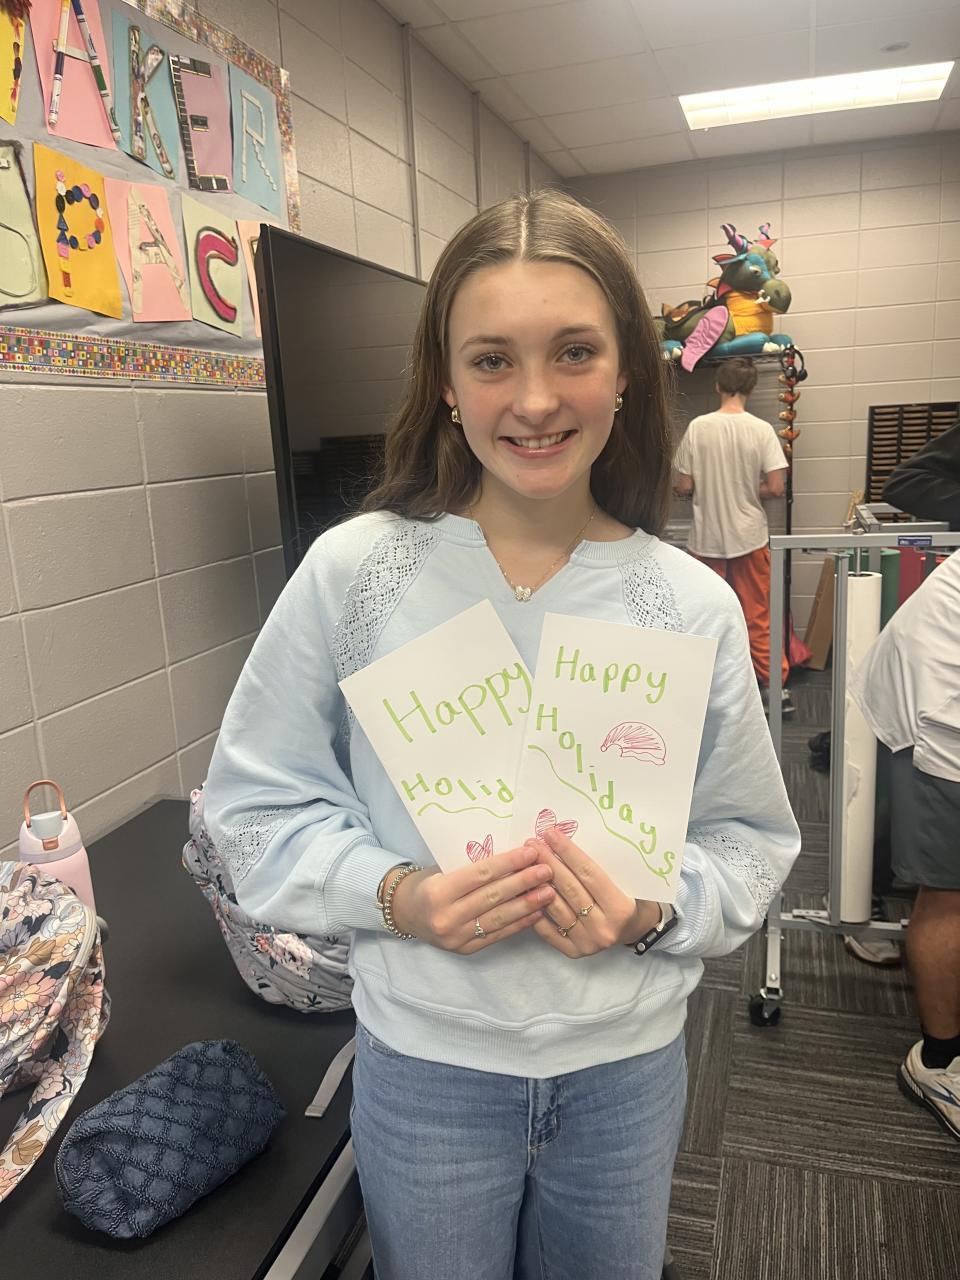 MAKER
SPAC
Happy
Holid
Happy
Holidays